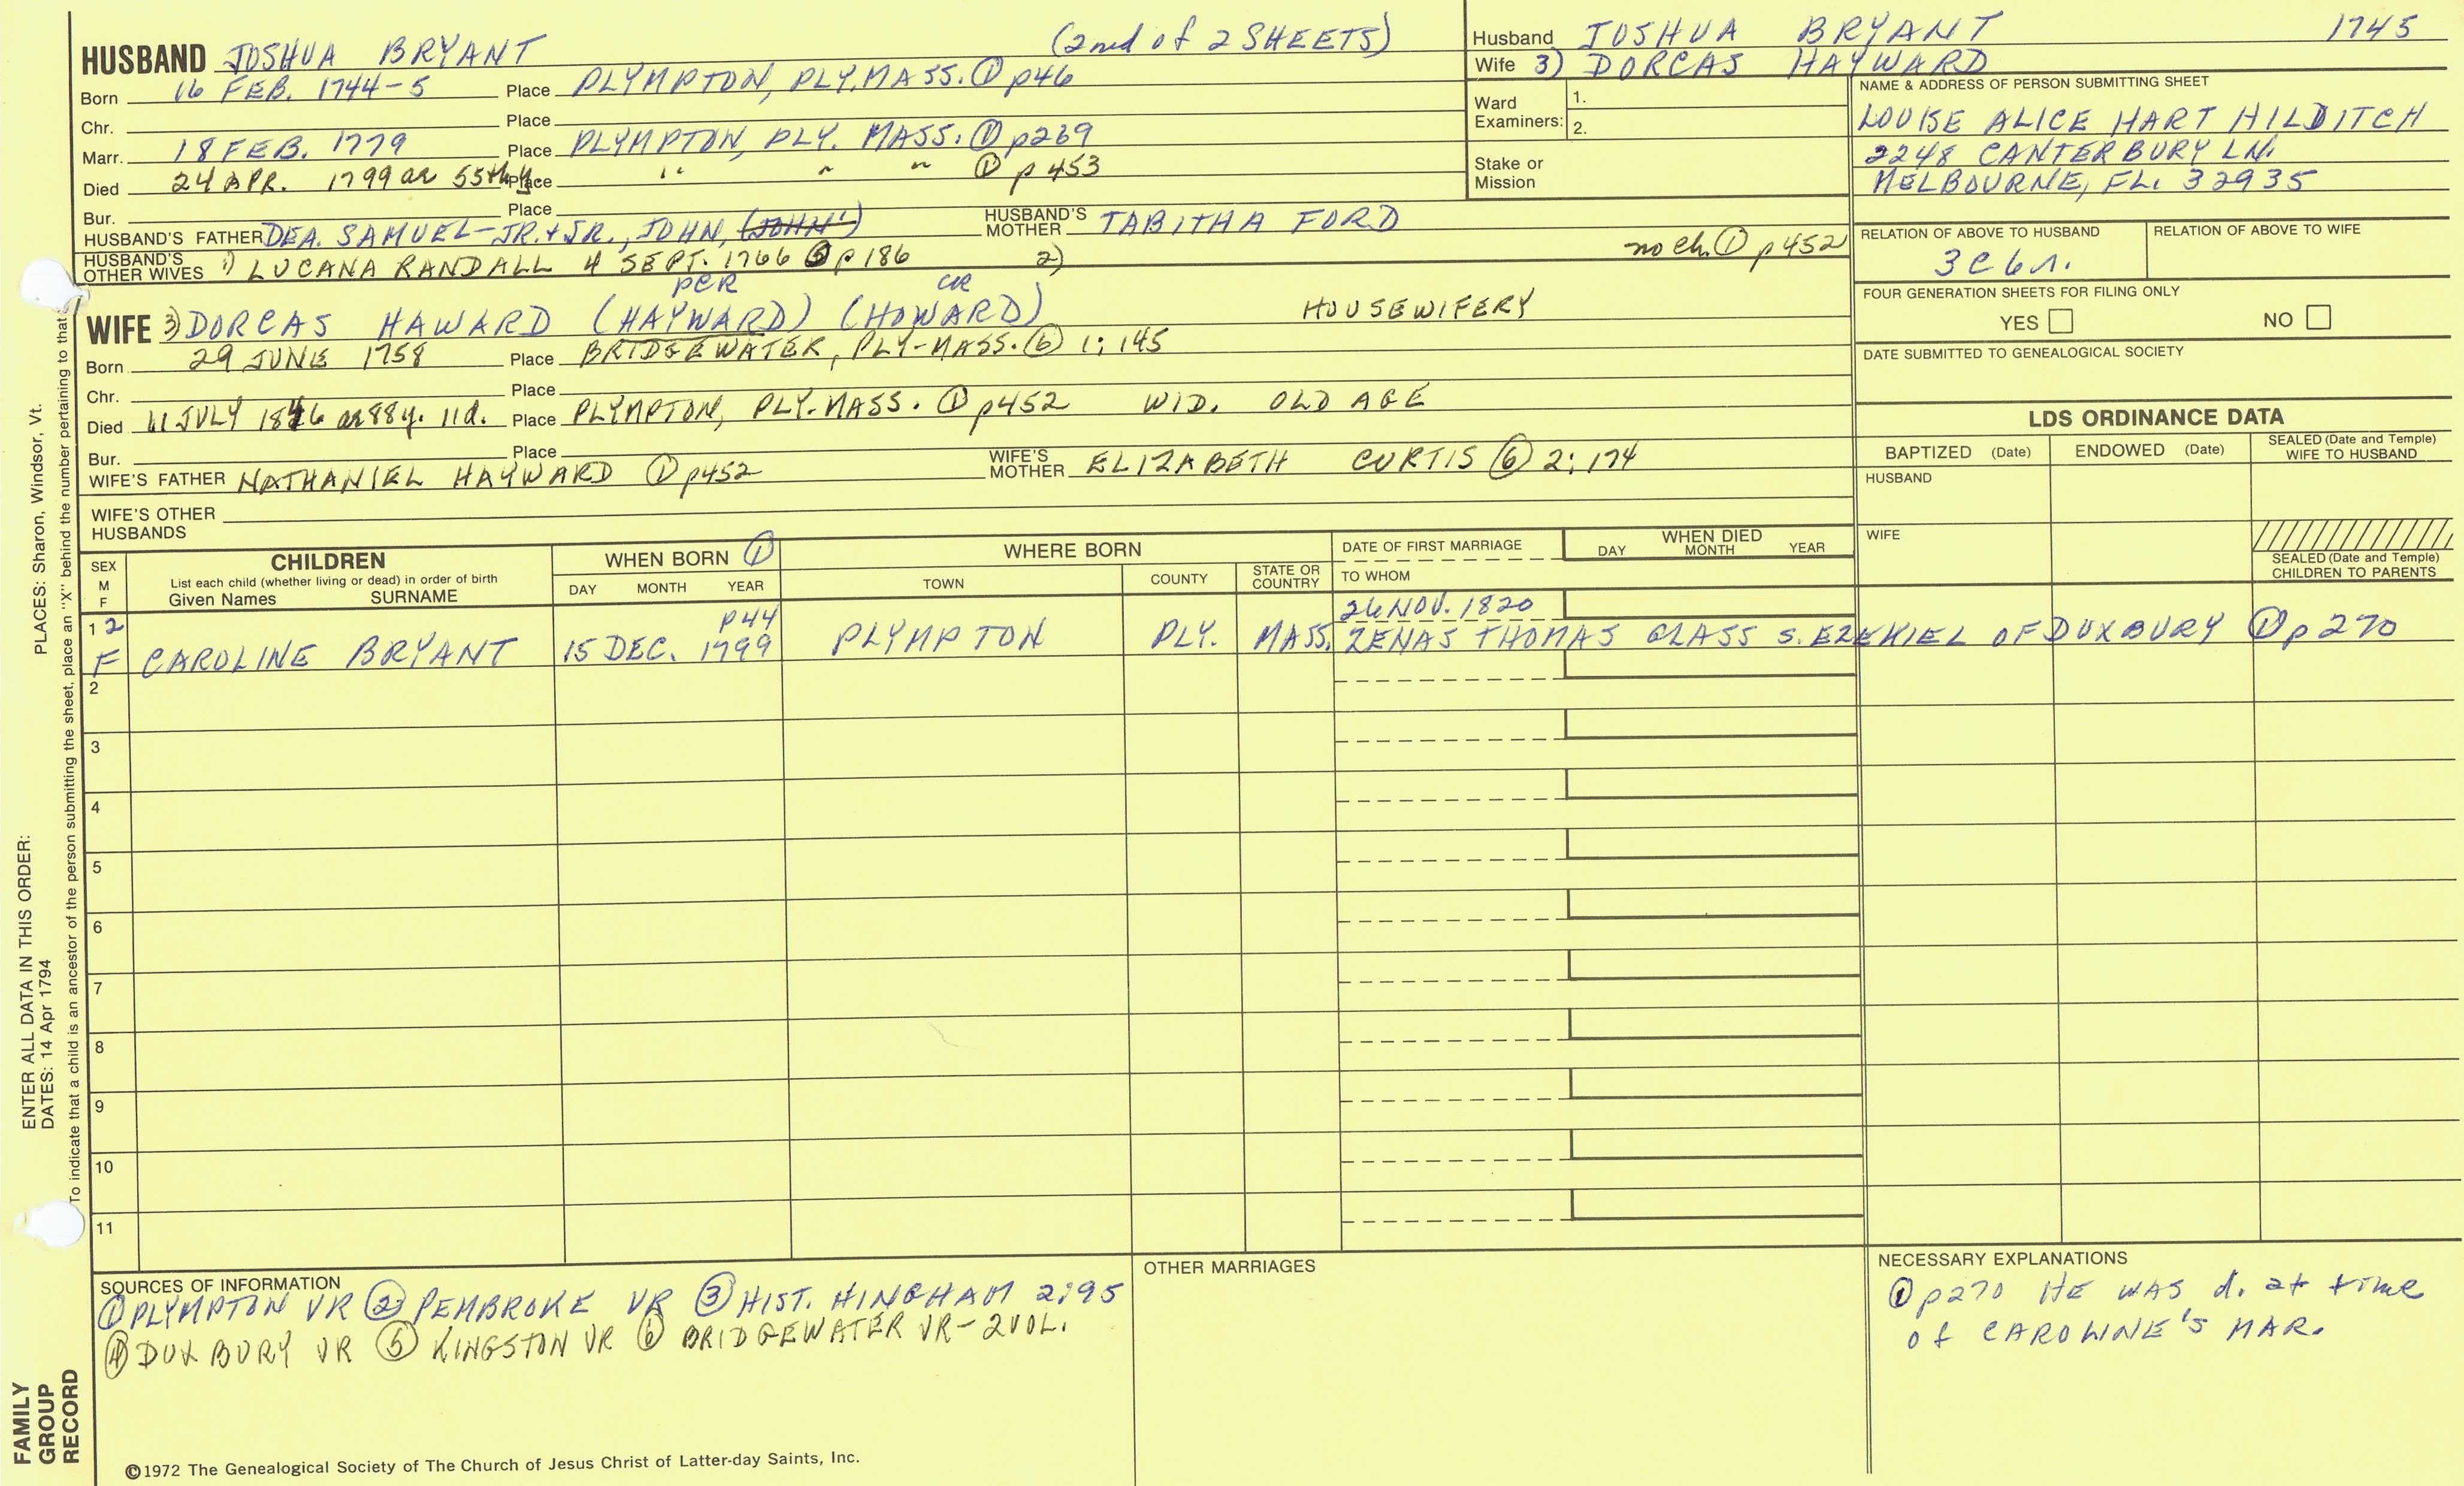 HUSBAND JOSHUA BRYANT (2nd of 2 SHEETS)
Born 16 FEB. 1744-5 Place PLYMPTON, PLY. MASS. ① p46
Chr. Place
Marr. 18 FEB. 1779 Place PLYMPTON, PLY. MASS. ① p269
Died 24 APR. 1799 ae 55thy. Place " " " ① p453
Bur. Place
HUSBAND'S FATHER DEA. SAMUEL-JR.+JR., JOHN, (JOHN') HUSBAND'S MOTHER TABITHA FORD
HUSBAND'S OTHER WIVES 1) LUCANA RANDALL 4 SEPT. 1766 p186 2) no ch. ① p452
Husband JOSHUA BRYANT 1745
Wife 3) DORCAS HAYWARD
Ward Examiners: 1.
2.
Stake or Mission
NAME & ADDRESS OF PERSON SUBMITTING SHEET
LOUISE ALICE HART HILDITCH
2248 CANTERBURY LN.
MELBOURNE, FL. 32935
RELATION OF ABOVE TO HUSBAND RELATION OF ABOVE TO WIFE
3c6r.
FOUR GENERATION SHEETS FOR FILING ONLY
YES NO
DATE SUBMITTED TO GENEALOGICAL SOCIETY
PCR CR
WIFE 3) DORCAS HAWARD (HAYWARD) (HOWARD) HOUSEWIFERY
Born 29 JUNE 1758 Place BRIDGEWATER, PLY-MASS. ⑥ 1:145
Chr. Place
Died 11 JULY 1846 ae 88y. 11d. Place PLYMPTON, PLY-MASS. ① p452 WID. OLD AGE
Bur. Place
WIFE'S FATHER NATHANIEL HAYWARD ① p452 WIFE'S MOTHER ELIZABETH CURTIS ⑥ 2:174
WIFE'S OTHER HUSBANDS
LDS ORDINANCE DATA
BAPTIZED (Date) ENDOWED (Date) SEALED (Date and Temple) WIFE TO HUSBAND
HUSBAND
WIFE
SEALED (Date and Temple) CHILDREN TO PARENTS
SEX M F CHILDREN WHEN BORN ① WHERE BORN DATE OF FIRST MARRIAGE WHEN DIED
List each child (whether living or dead) in order of birth
Given Names SURNAME DAY MONTH YEAR TOWN COUNTY STATE OR COUNTRY TO WHOM DAY MONTH YEAR
1 2 p44 26 NOV. 1820
F CAROLINE BRYANT 15 DEC. 1799 PLYMPTON PLY. MASS. ZENAS THOMAS GLASS S. EZEKIEL OF DUXBURY ① p270
2
3
4
5
6
7
8
9
10
11
SOURCES OF INFORMATION
① PLYMPTON VR ② PEMBROKE VR ③ HIST. HINGHAM 2:95
④ DUXBURY VR ⑤ KINGSTON VR ⑥ BRIDGEWATER VR-2VOL.
OTHER MARRIAGES
NECESSARY EXPLANATIONS
① p270 HE WAS d. at time
of CAROLINE'S MAR.
©1972 The Genealogical Society of The Church of Jesus Christ of Latter-day Saints, Inc.
FAMILY GROUP RECORD
ENTER ALL DATA IN THIS ORDER:
DATES: 14 Apr 1794
PLACES: Sharon, Windsor, Vt.
To indicate that a child is an ancestor of the person submitting the sheet, place an "X" behind the number pertaining to that